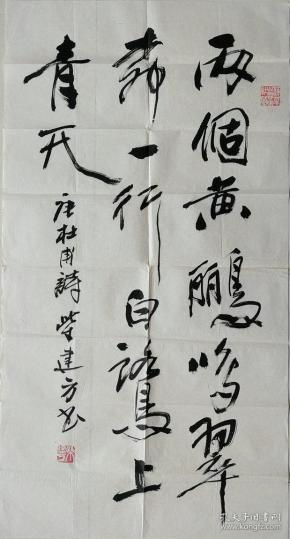 两個黄鸝鳴翠
柳一行白鷺上
青天
唐杜甫詩柴建方书
孔夫子旧书网